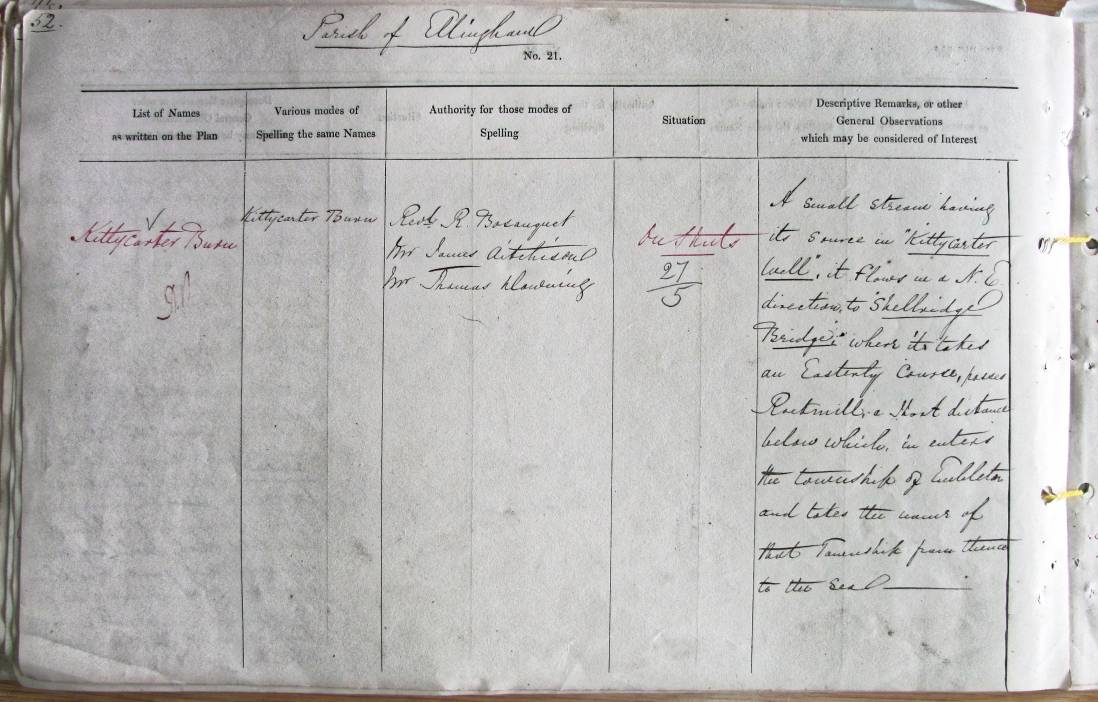 52.
Parish of Ellingham
No. 21.
List of Names
as written on the Plan
Various modes of
Spelling the same Names
Authority for those modes of
Spelling
Situation
Descriptive Remarks, or other
General Observations
which may be considered of Interest
Kittycarter Burn
Kittycarter Burn
Revd. R. Bosanquet
Mr James Aitchison
Mr Thomas Downing
On Shuts
27
5
A small stream having
its source in "Kittycarter
Well", it flows in a N.E.
direction, to "Shellridge
Bridge;" where it takes
an Easterly Course, passes
Rockmill, a short distance
below which, in enters
the township of Embleton
and takes the name of
that Township from thence
to the Sea